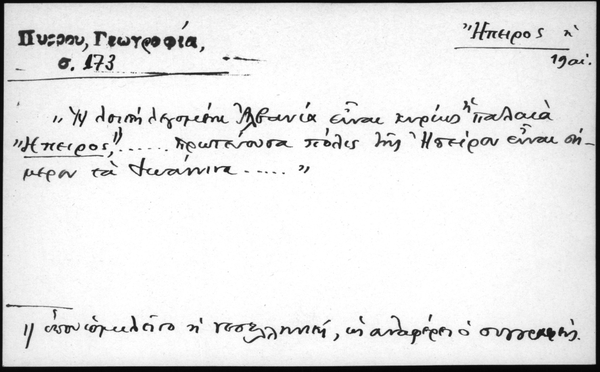 Πύρρου, Γεωγραφία,
σ. 173
Ἤπειρος ἡ
19 αἰ.
„ Ἡ λοιπὴ λεγομένη Ἀλβανία εἶναι κυρίως ἡ παλαιὰ
"Ἤπειρος,¹⁾ ...... πρωτεύουσα πόλις τῆς Ἠπείρου εἶναι σή-
μερον τὰ Ἰωάννινα ..... "
1) ὅπου ὡμιλεῖτο ἡ νεοελληνική, ὡς ἀναφέρει ὁ συγγραφεύς.